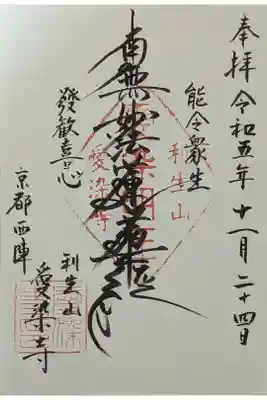 奉拝 令和五年 十一月 二十四日
能令衆生
利生山
南無妙法蓮華経
愛染寺
發歓喜心
利生山
愛染寺
京都西陣